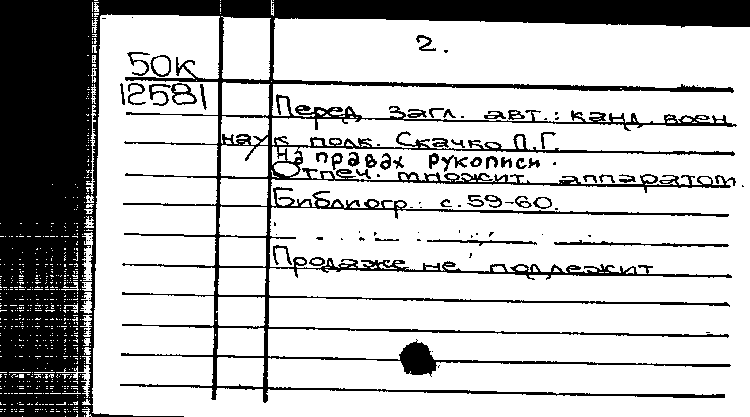 2.
50К
12581
Перед загл. авт.: канд. воен.
наук полк. Скачко П.Г.
На правах рукописи.
Отпеч. множит. аппаратом.
Библиогр.: с. 59-60.
Продаже не подлежит